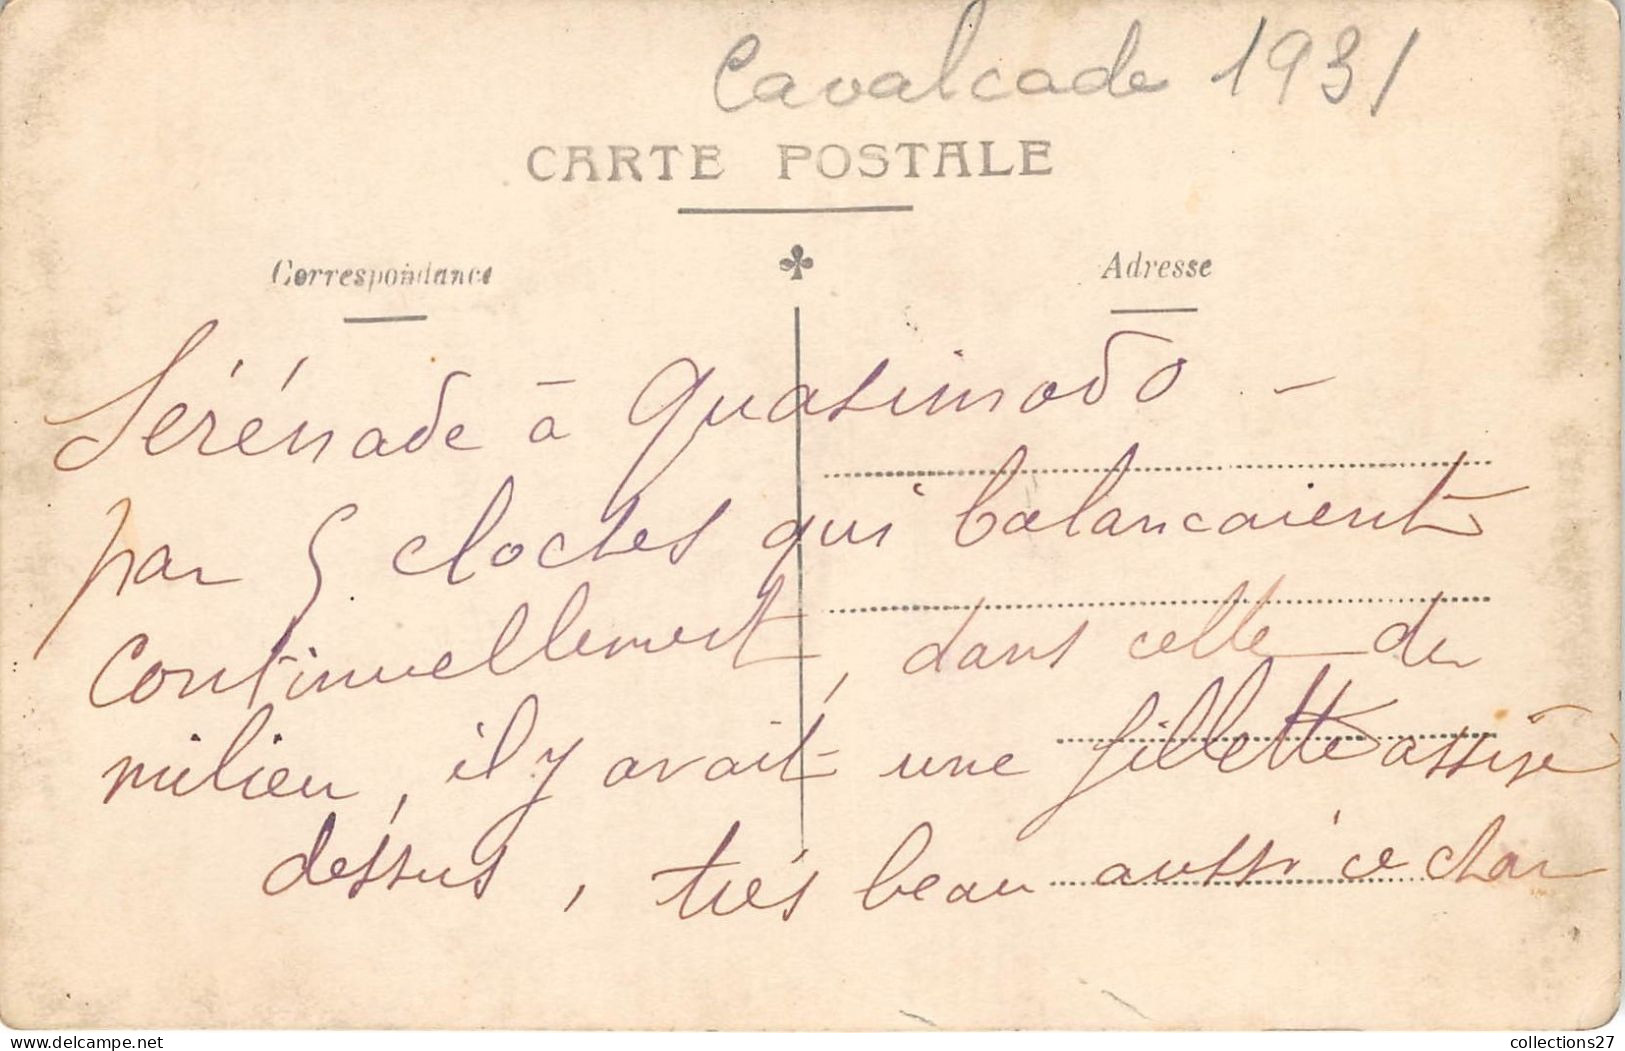 Cavalcade 1931
CARTE POSTALE
Correspondance
Adresse
Sérénade à Quasimodo -
par 5 cloches qui balancaient
continuellement, dans celle du
milieu, il y avait une fillette assise
dessus, très beau aussi ce char
www.delcampe.net
collections27